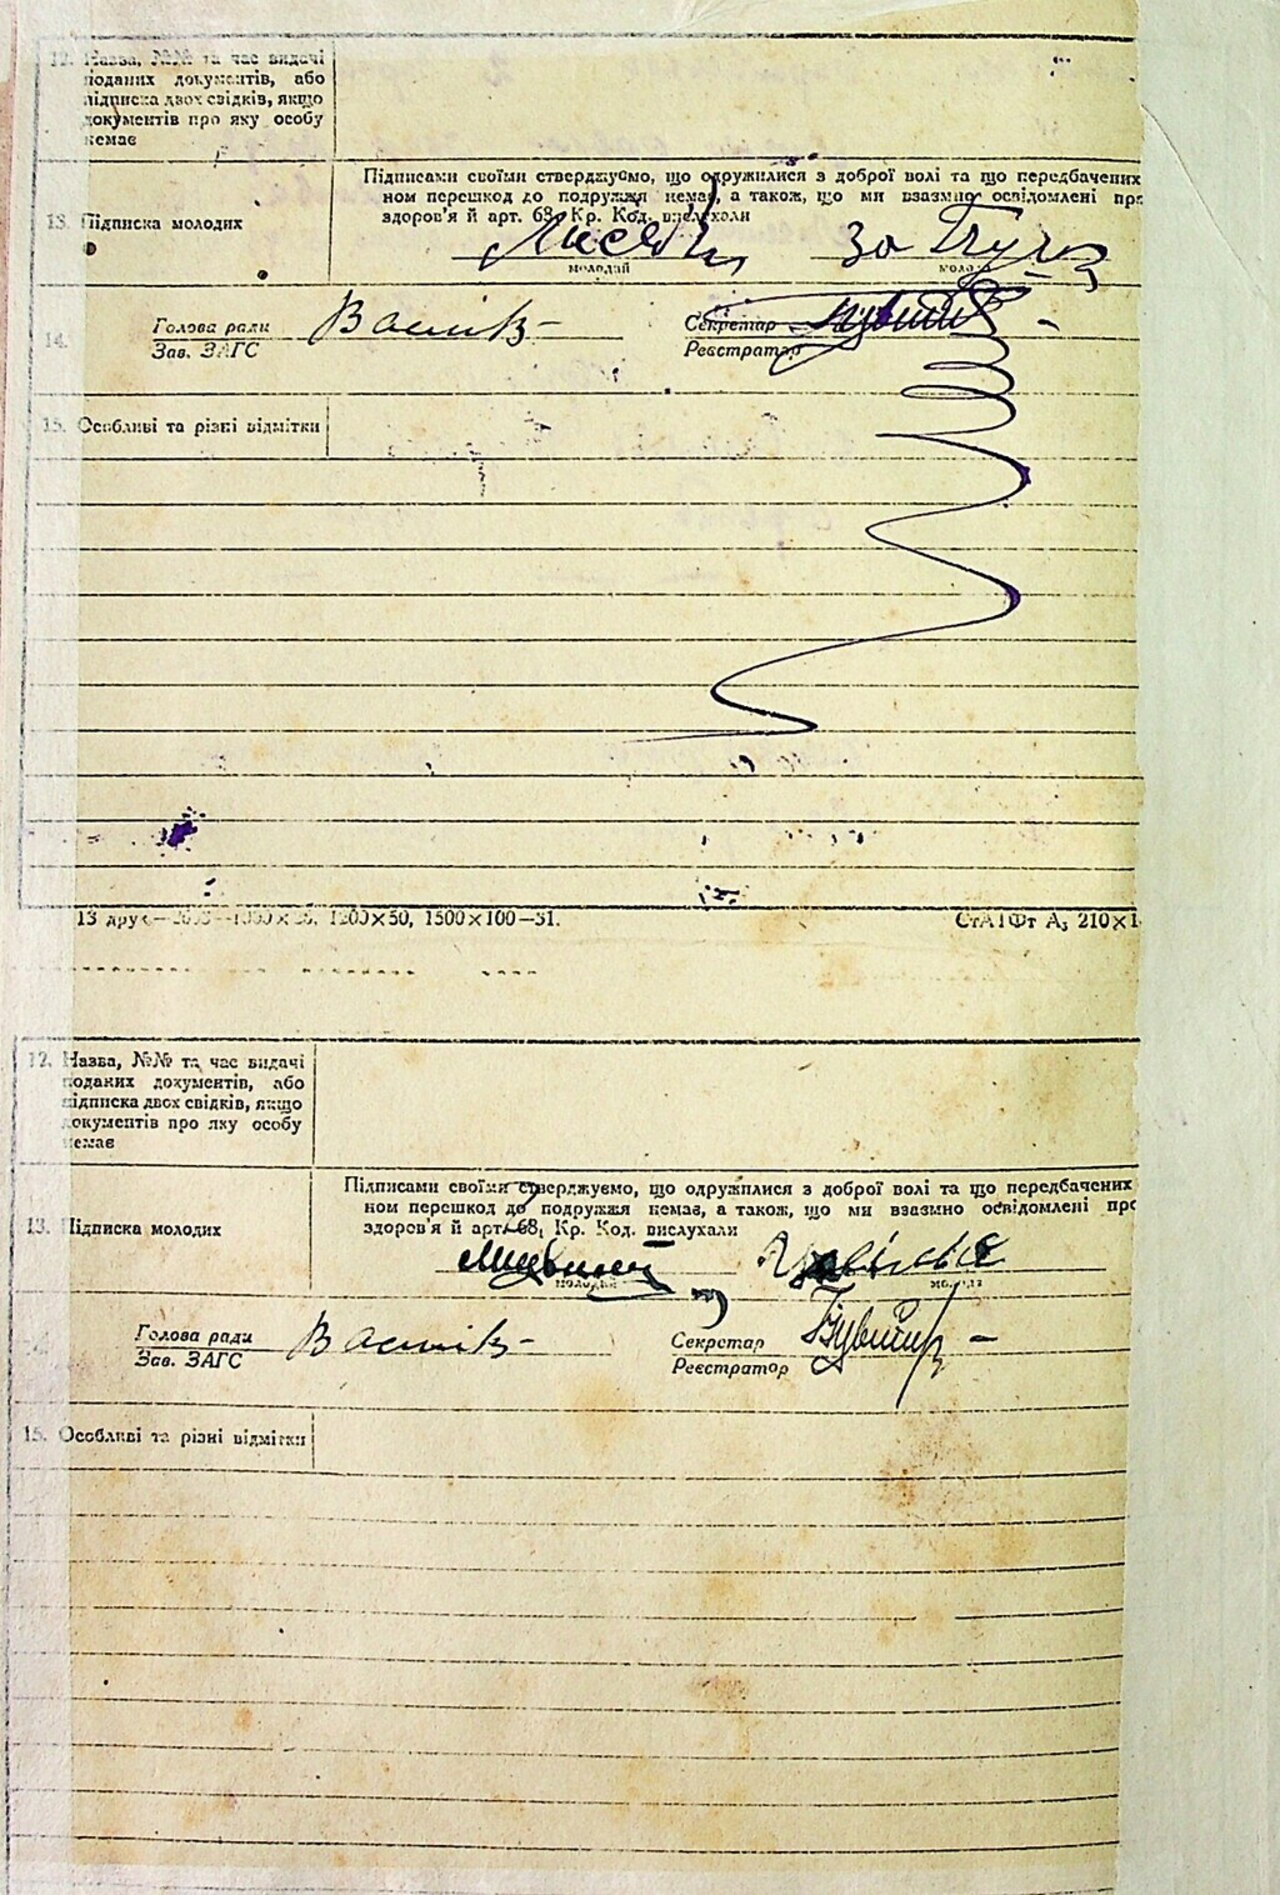 12. Назва, №№ та час видачі
поданих документів, або
підписка двох свідків, якщо
документів про яку особу
немає
Підписами своїми стверджуємо, що одружилися з доброї волі та що передбачених
ном перешкод до подружжя немає, а також, що ми взаємно освідомлені про
здоров'я й арт. 68, Кр. Код. вислухали
13. Підписка молодих
за
молодий
14.
Голова ради
Секретар
Зав. ЗАГС
Реєстратор
15. Особливі та різні відмітки
13 друк 1200×50, 1500×100—31.
А₅ 210×1
12. Назва, №№ та час видачі
поданих документів, або
підписка двох свідків, якщо
документів про яку особу
немає
Підписами своїми стверджуємо, що одружилися з доброї волі та що передбачених
ном перешкод до подружжя немає, а також, що ми взаємно освідомлені про
здоров'я й арт. 68, Кр. Код. вислухали
13. Підписка молодих
молодий
молода
Голова ради
Секретар
Зав. ЗАГС
Реєстратор
15. Особливі та різні відмітки